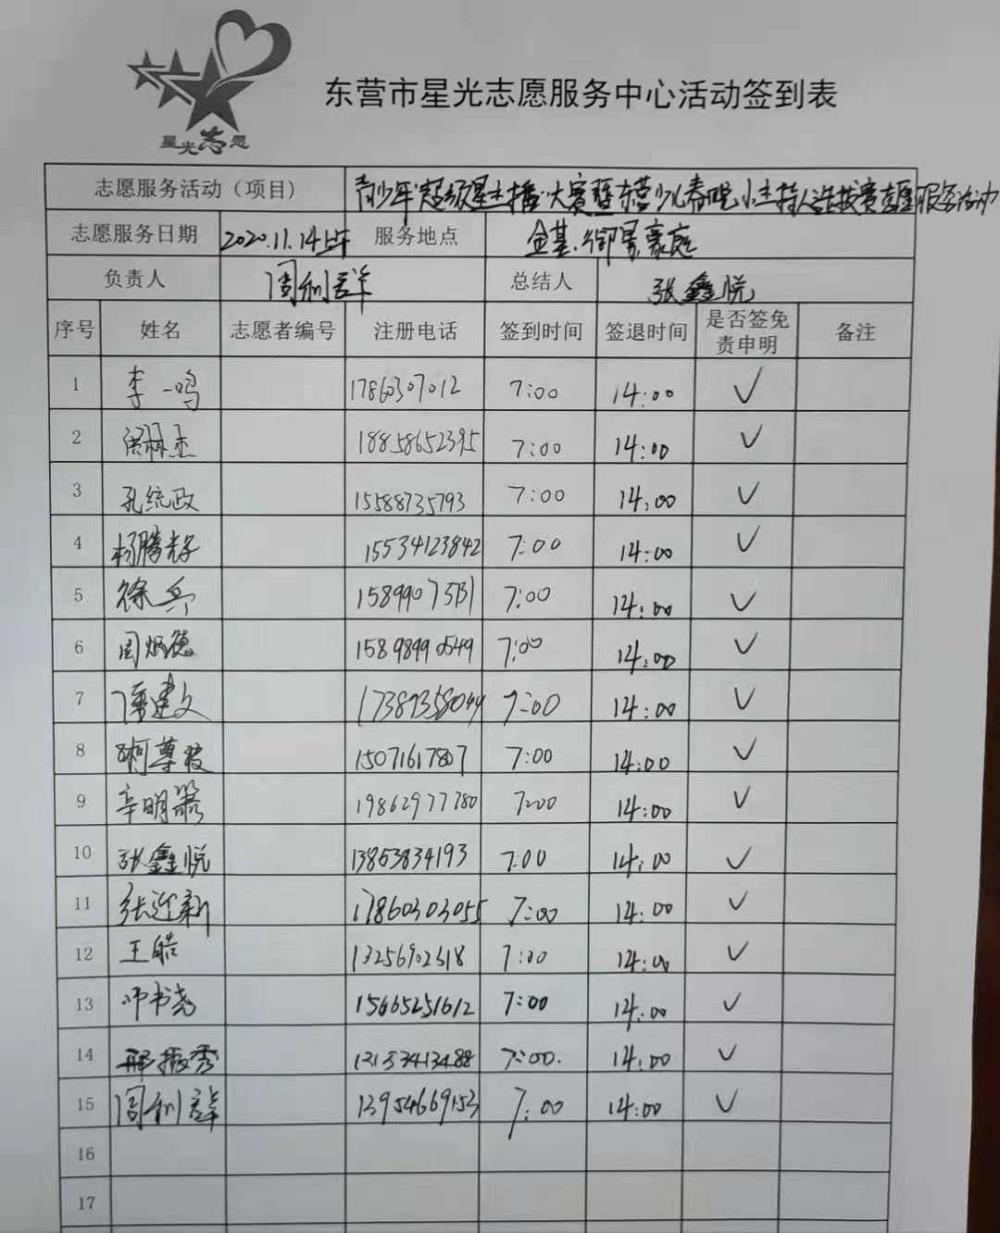 星光志愿
东营市星光志愿服务中心活动签到表
志愿服务活动（项目） 青少年"超级星主播"大赛暨东营少儿春晚小主持人选拔赛志愿服务活动
志愿服务日期 2020.11.14上午 服务地点 金基·御景豪庭
负责人 周利群 总结人 张鑫悦
序号 姓名 志愿者编号 注册电话 签到时间 签退时间 是否签免责申明 备注
1 李一鸣 1786307012 7:00 14:00 ✓
2 18858652395 7:00 14:00 ✓
3 孔统政 15588735793 7:00 14:00 ✓
4 杨腾 15534123842 7:00 14:00 ✓
5 徐兵 7:00 14:00 ✓
6 周炳德 7:00 14:00 ✓
7 潘建文 17389358044 7:00 14:00 ✓
8 尊 15071617807 7:00 14:00 ✓
9 辛明 19862977780 7:00 14:00 ✓
10 张鑫悦 13853834193 7:00 14:00 ✓
11 张迎新 17860303055 7:00 14:00 ✓
12 王皓 13256902318 7:00 14:00 ✓
13 邓书尧 15665251612 7:00 14:00 ✓
14 振秀 7:00 14:00 ✓
15 周利群 13954669153 7:00 14:00 ✓
16
17